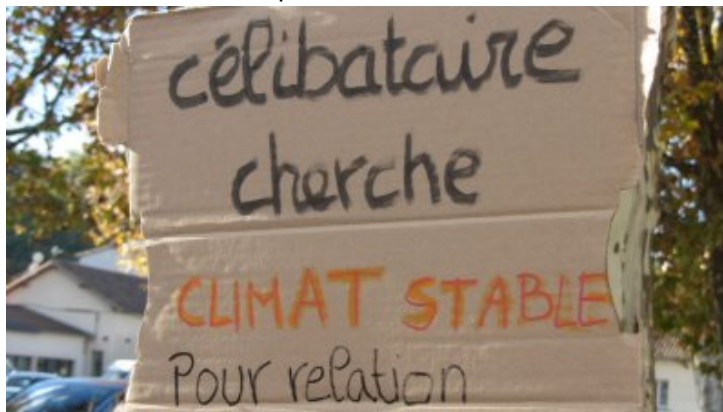 célibataire
cherche
CLIMAT STABLE
Pour relation